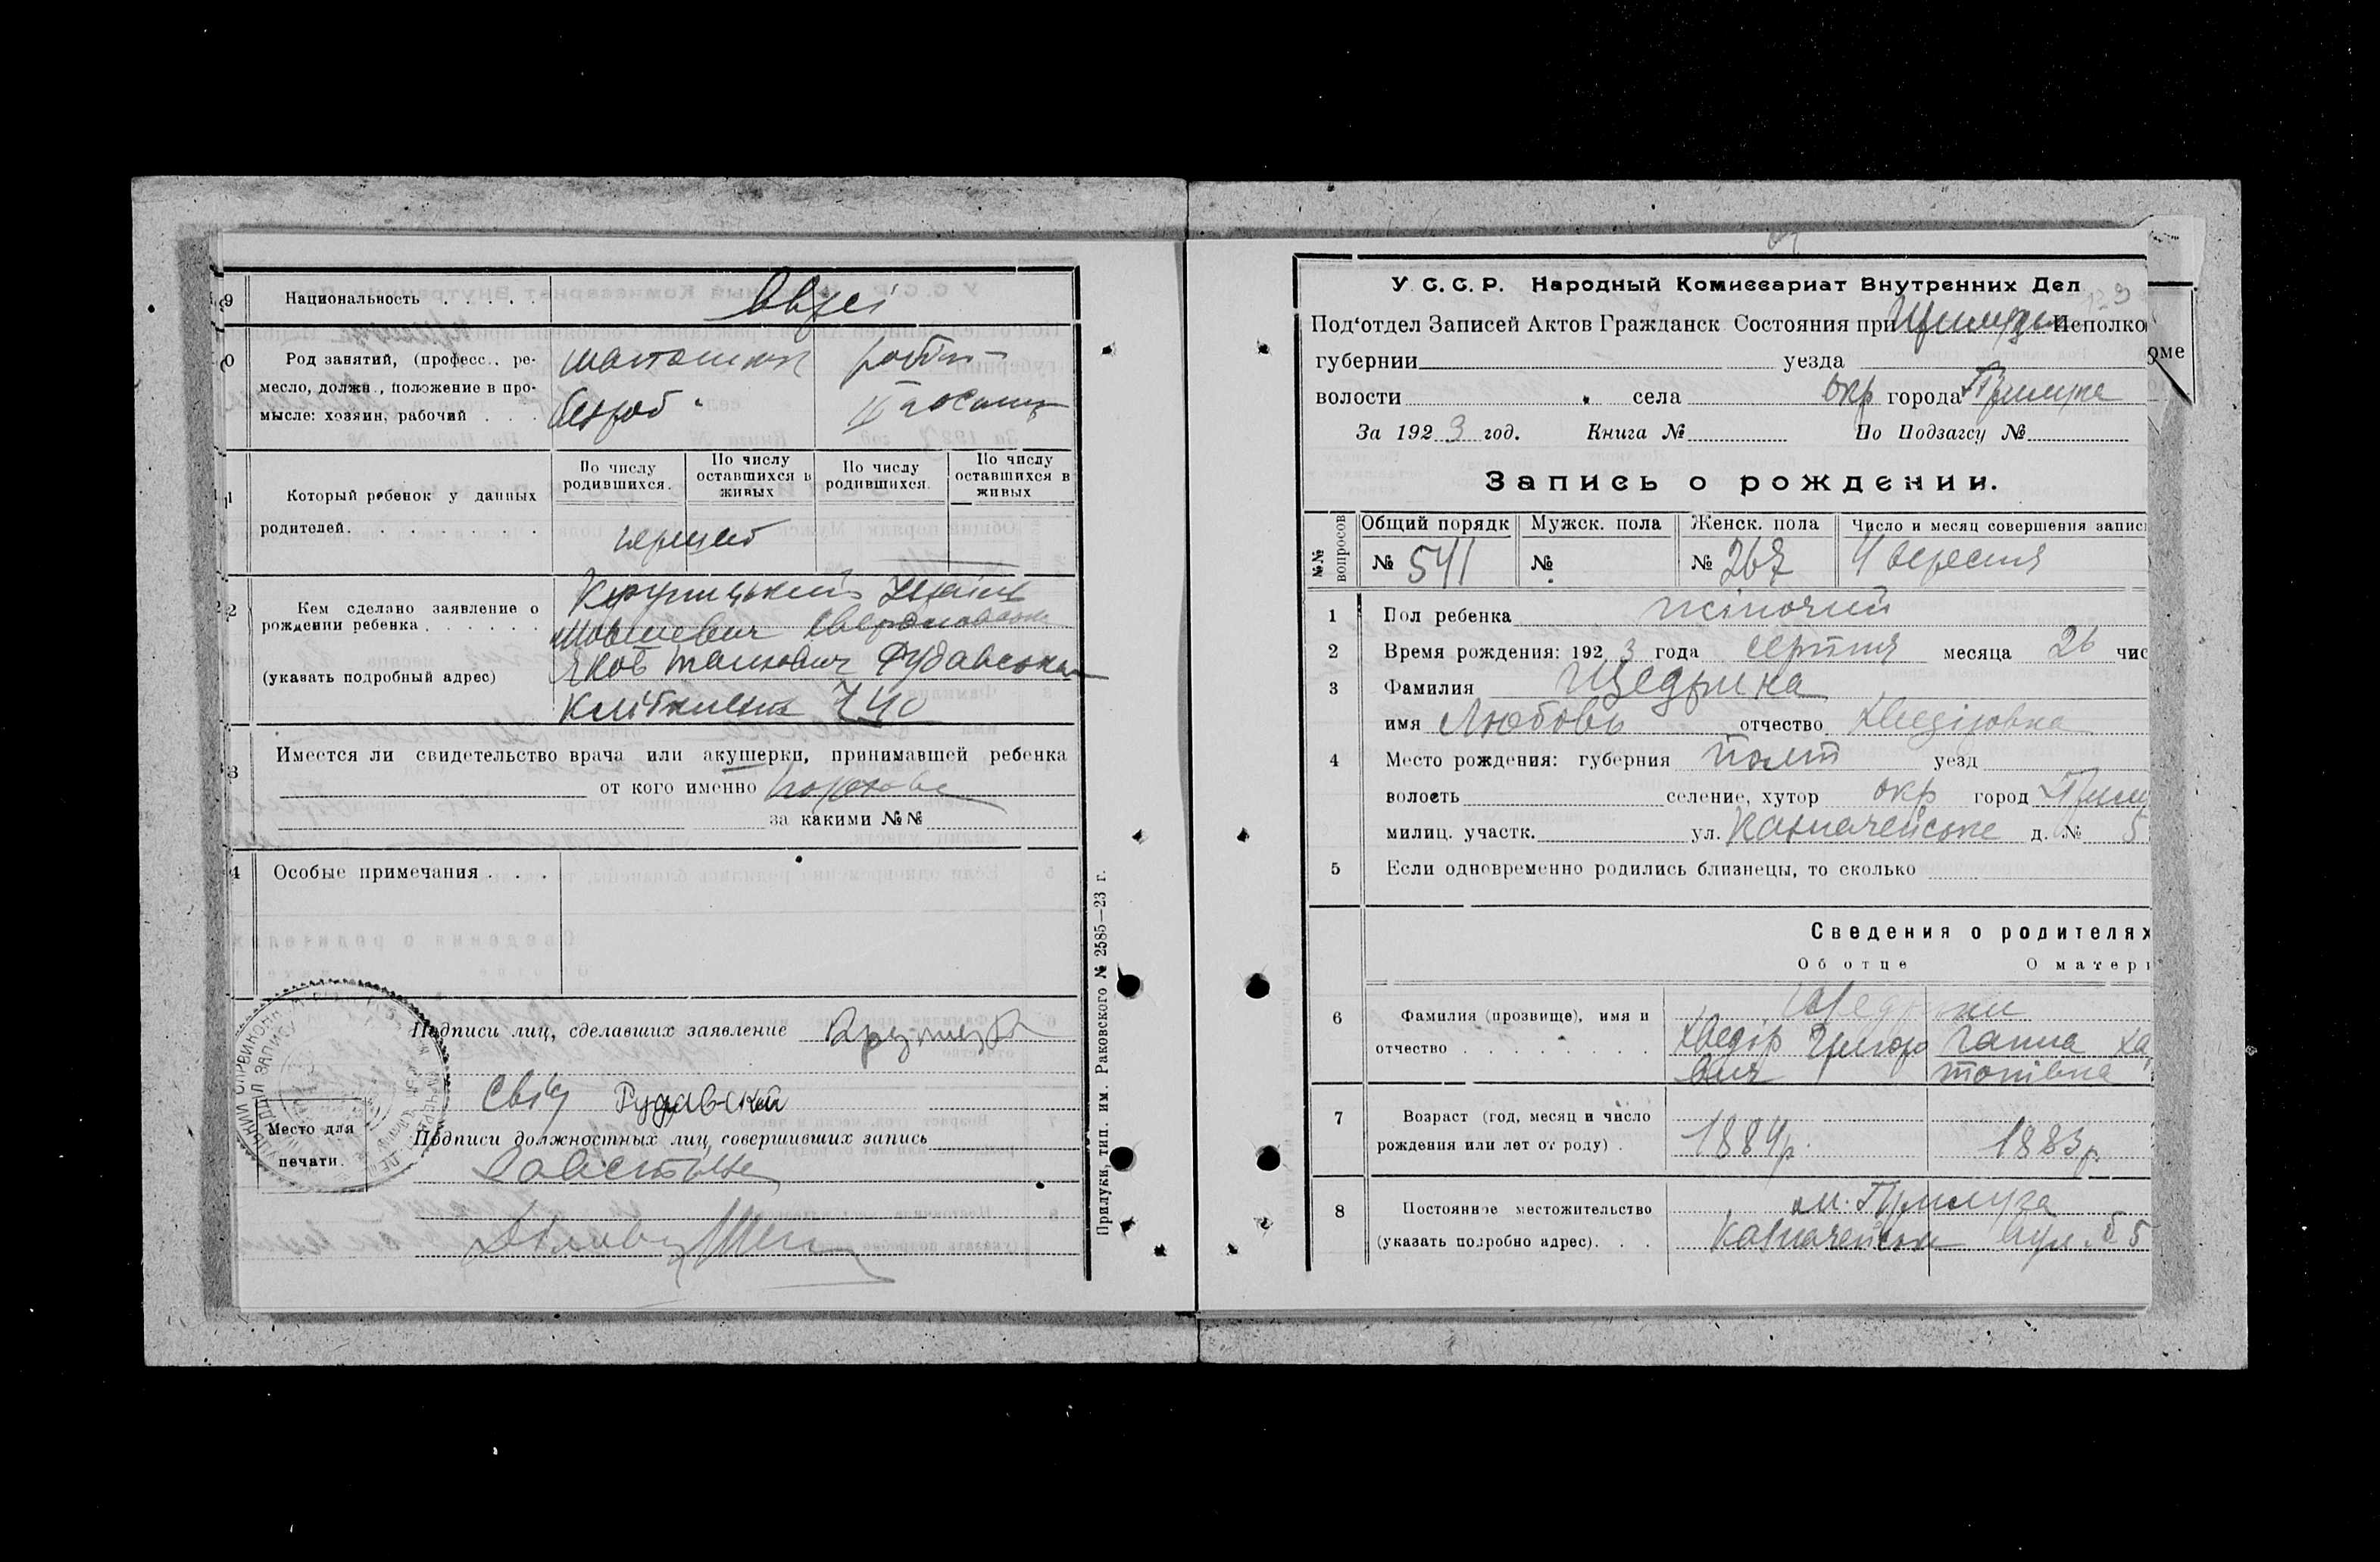 9 Национальность . . . . Євреї
0 Род занятий, (професс.. ре-
месло, должн., положение в про-
мысле: хозяин, рабочий . . .
безроб
По числу родившихся. По числу оставшихся в живых По числу родившихся. По числу оставшихся в живых
1 Который ребенок у данных
родителей. . . . . . . .
перший
2 Кем сделано заявление о
рождении ребенка . . . . . .
(указать подробный адрес)
Мовшевич
Яков Рудавськи
740
3 Имеется ли свидетельство врача или акушерки, принимавшей ребенка
от кого именно
за какими №№
4 Особые примечания . . .
Подписи лиц, сделавших заявление
Свід Рудавский
Место для
печати.
Подписи должностных лиц, совершивших запись
Прилуки, тип. им. Раковского № 2585—23 г.
У. С. С. Р. Народный Комиссариат Внутренних Дел
Под'отдел Записей Актов Гражданск Состояния при Исполко
оме
губернии уезда
волости села окр города Прилука
За 192 3 год. Книга № По Подзагсу №
Запись о рождении.
№№ вопросов
Общий порядк Мужск. пола Женск. пола Число и месяц совершения запис
№ 541 № № 267 4 вересня
1 Пол ребенка жіночий
2 Время рождения: 192 3 года серпня месяца 26 чис
3 Фамилия Щедрина
имя Любовь отчество Хведіровна
4 Место рождения: губерния Полт уезд
волость селение, хутор окр город Прилу
милиц. участк. ул. Казначейське д. № 5
5 Если одновременно родились близнецы, то сколько
Сведения о родителях
Об отце О матери
6 Фамилия (прозвище), имя и
отчество . . . . . . . .
Щедрини
Хведір Григоро Ганна Ха
вич тонівна
7 Возраст (год, месяц и число
рождения или лет от роду) .
1884р. 1883р.
8 Постоянное местожительство
(указать подробно адрес). . .
м. Прилуга
Казначейська вул. 5